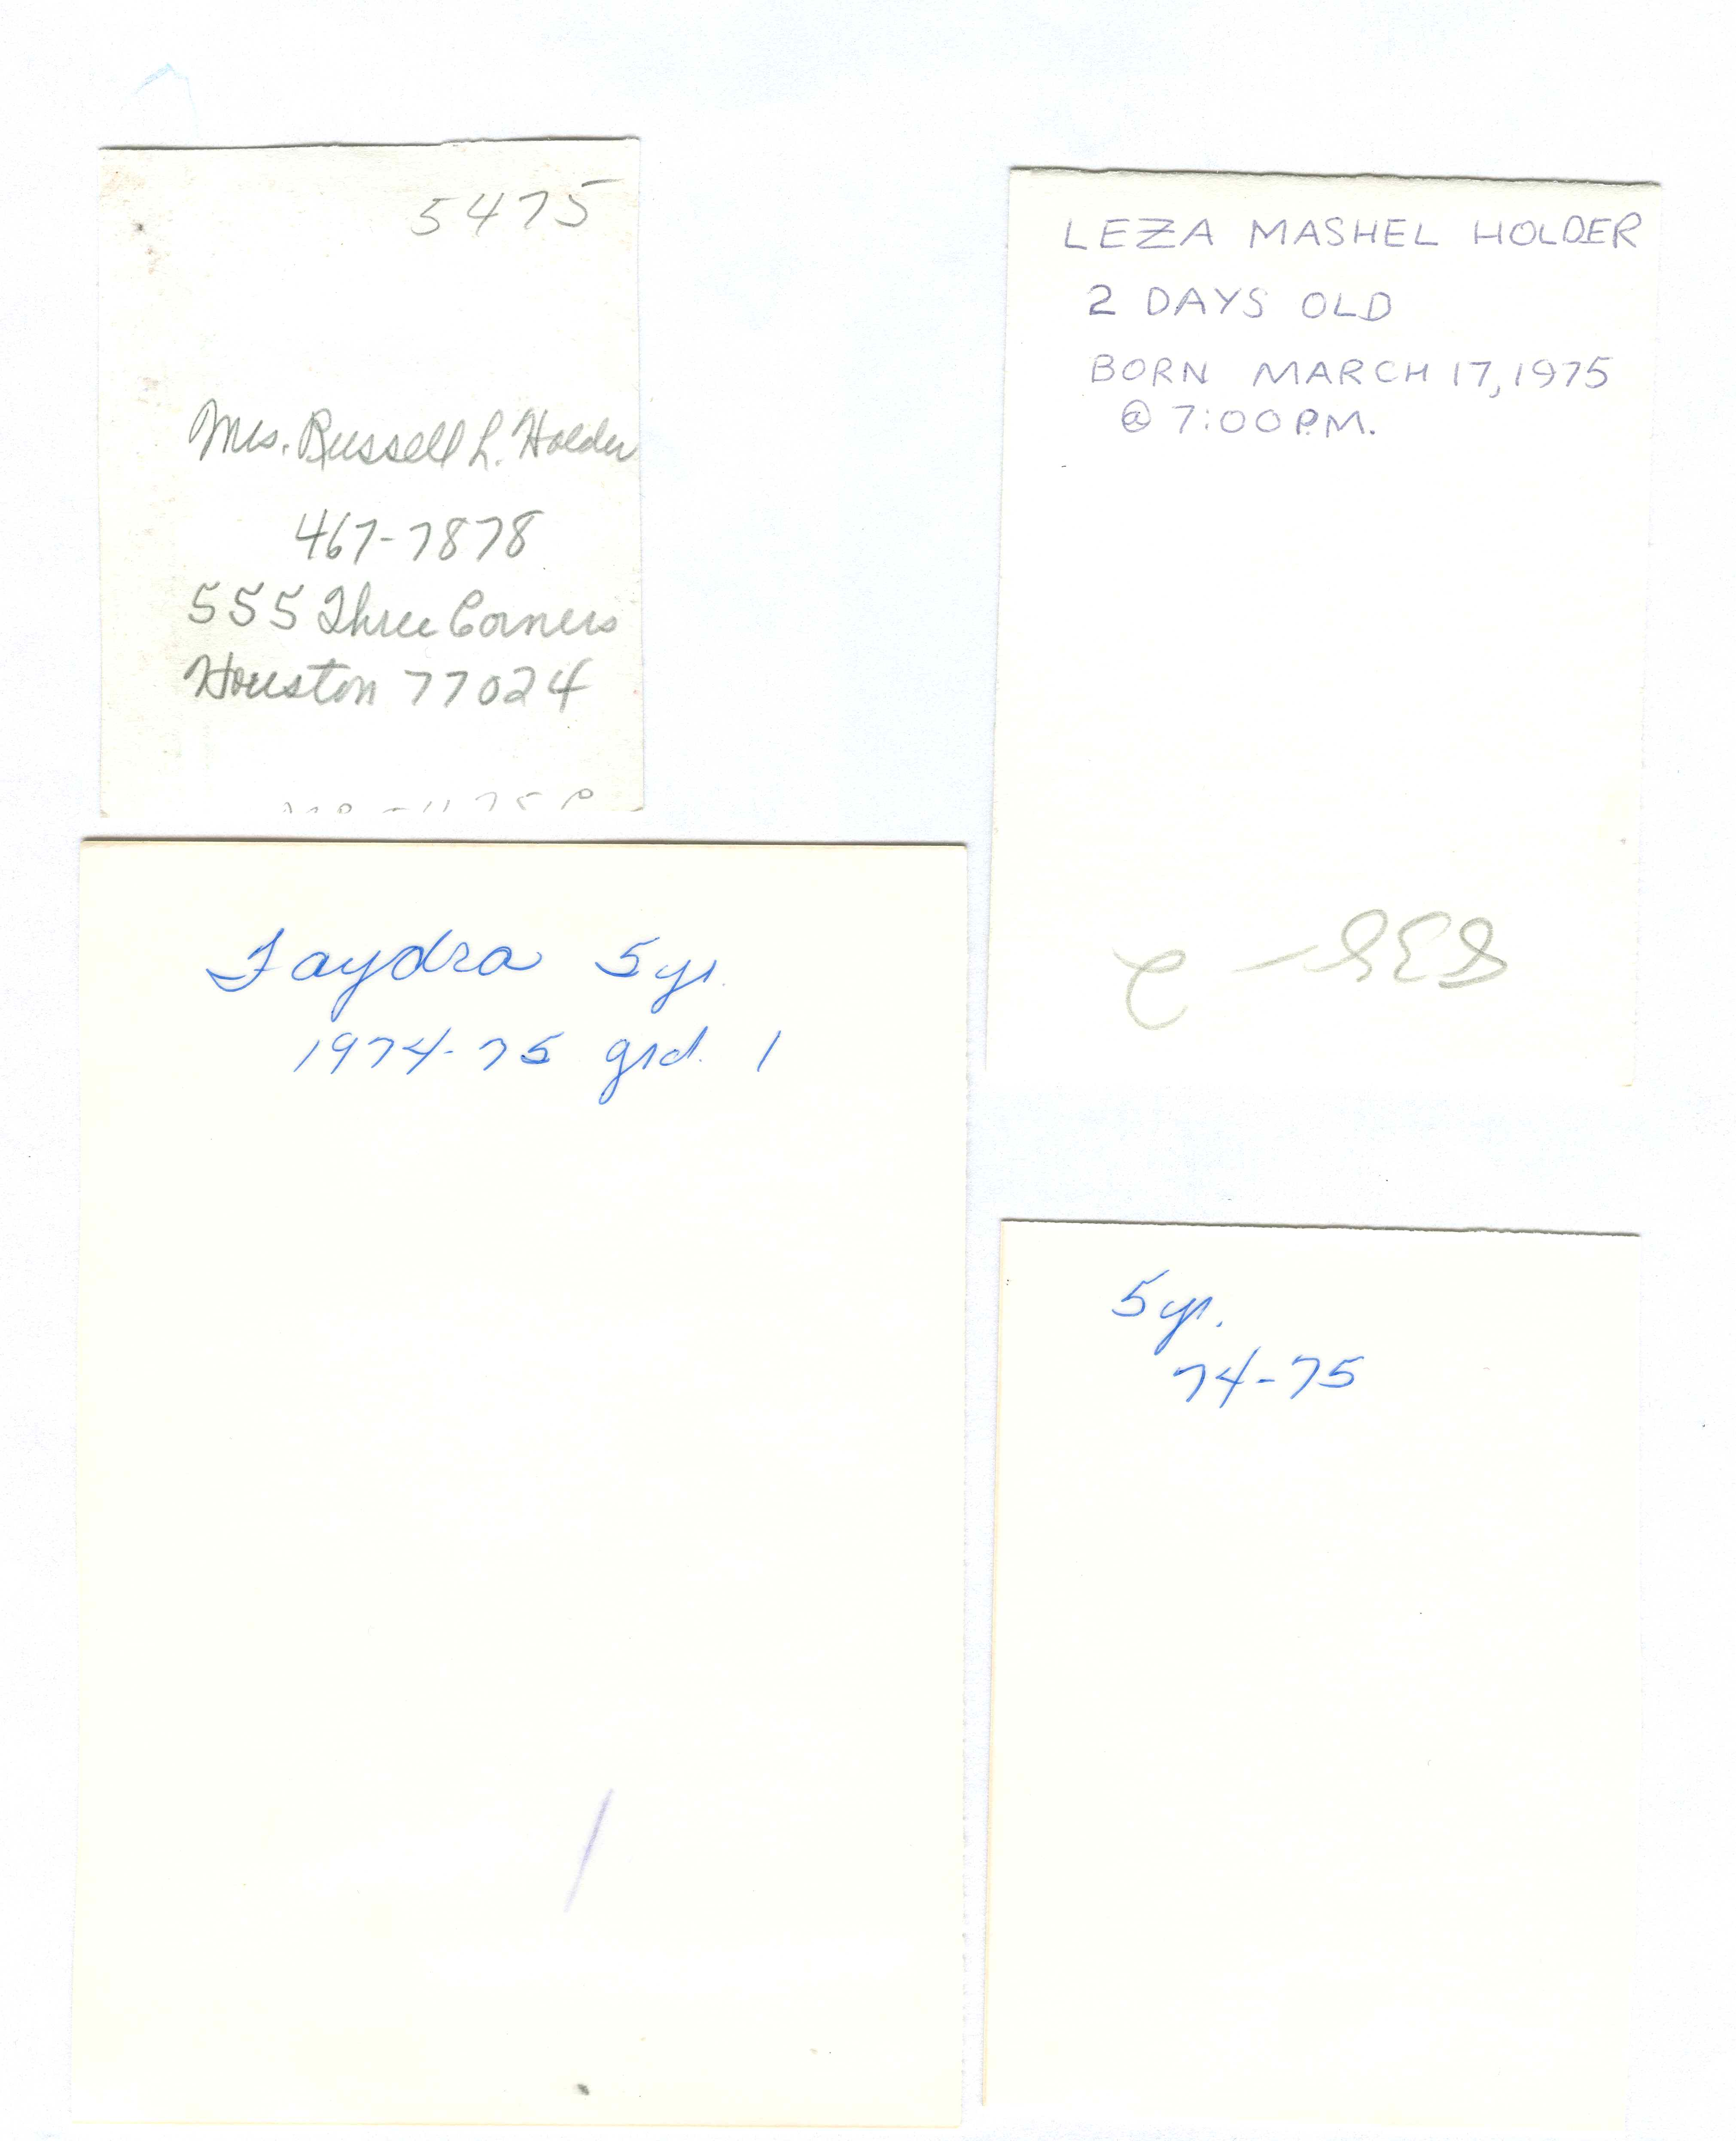 5475
Mrs. Russell L. Holder
467-7878
555 Three Corners
Houston 77024
LEZA MASHEL HOLDER
2 DAYS OLD
BORN MARCH 17, 1975
@ 7:00 P.M.
Taydra 5 yr.
1974-75 grd. 1
5 yr.
74-75